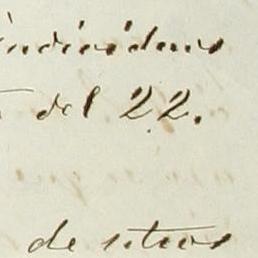 individuos
del 22.
de sitios